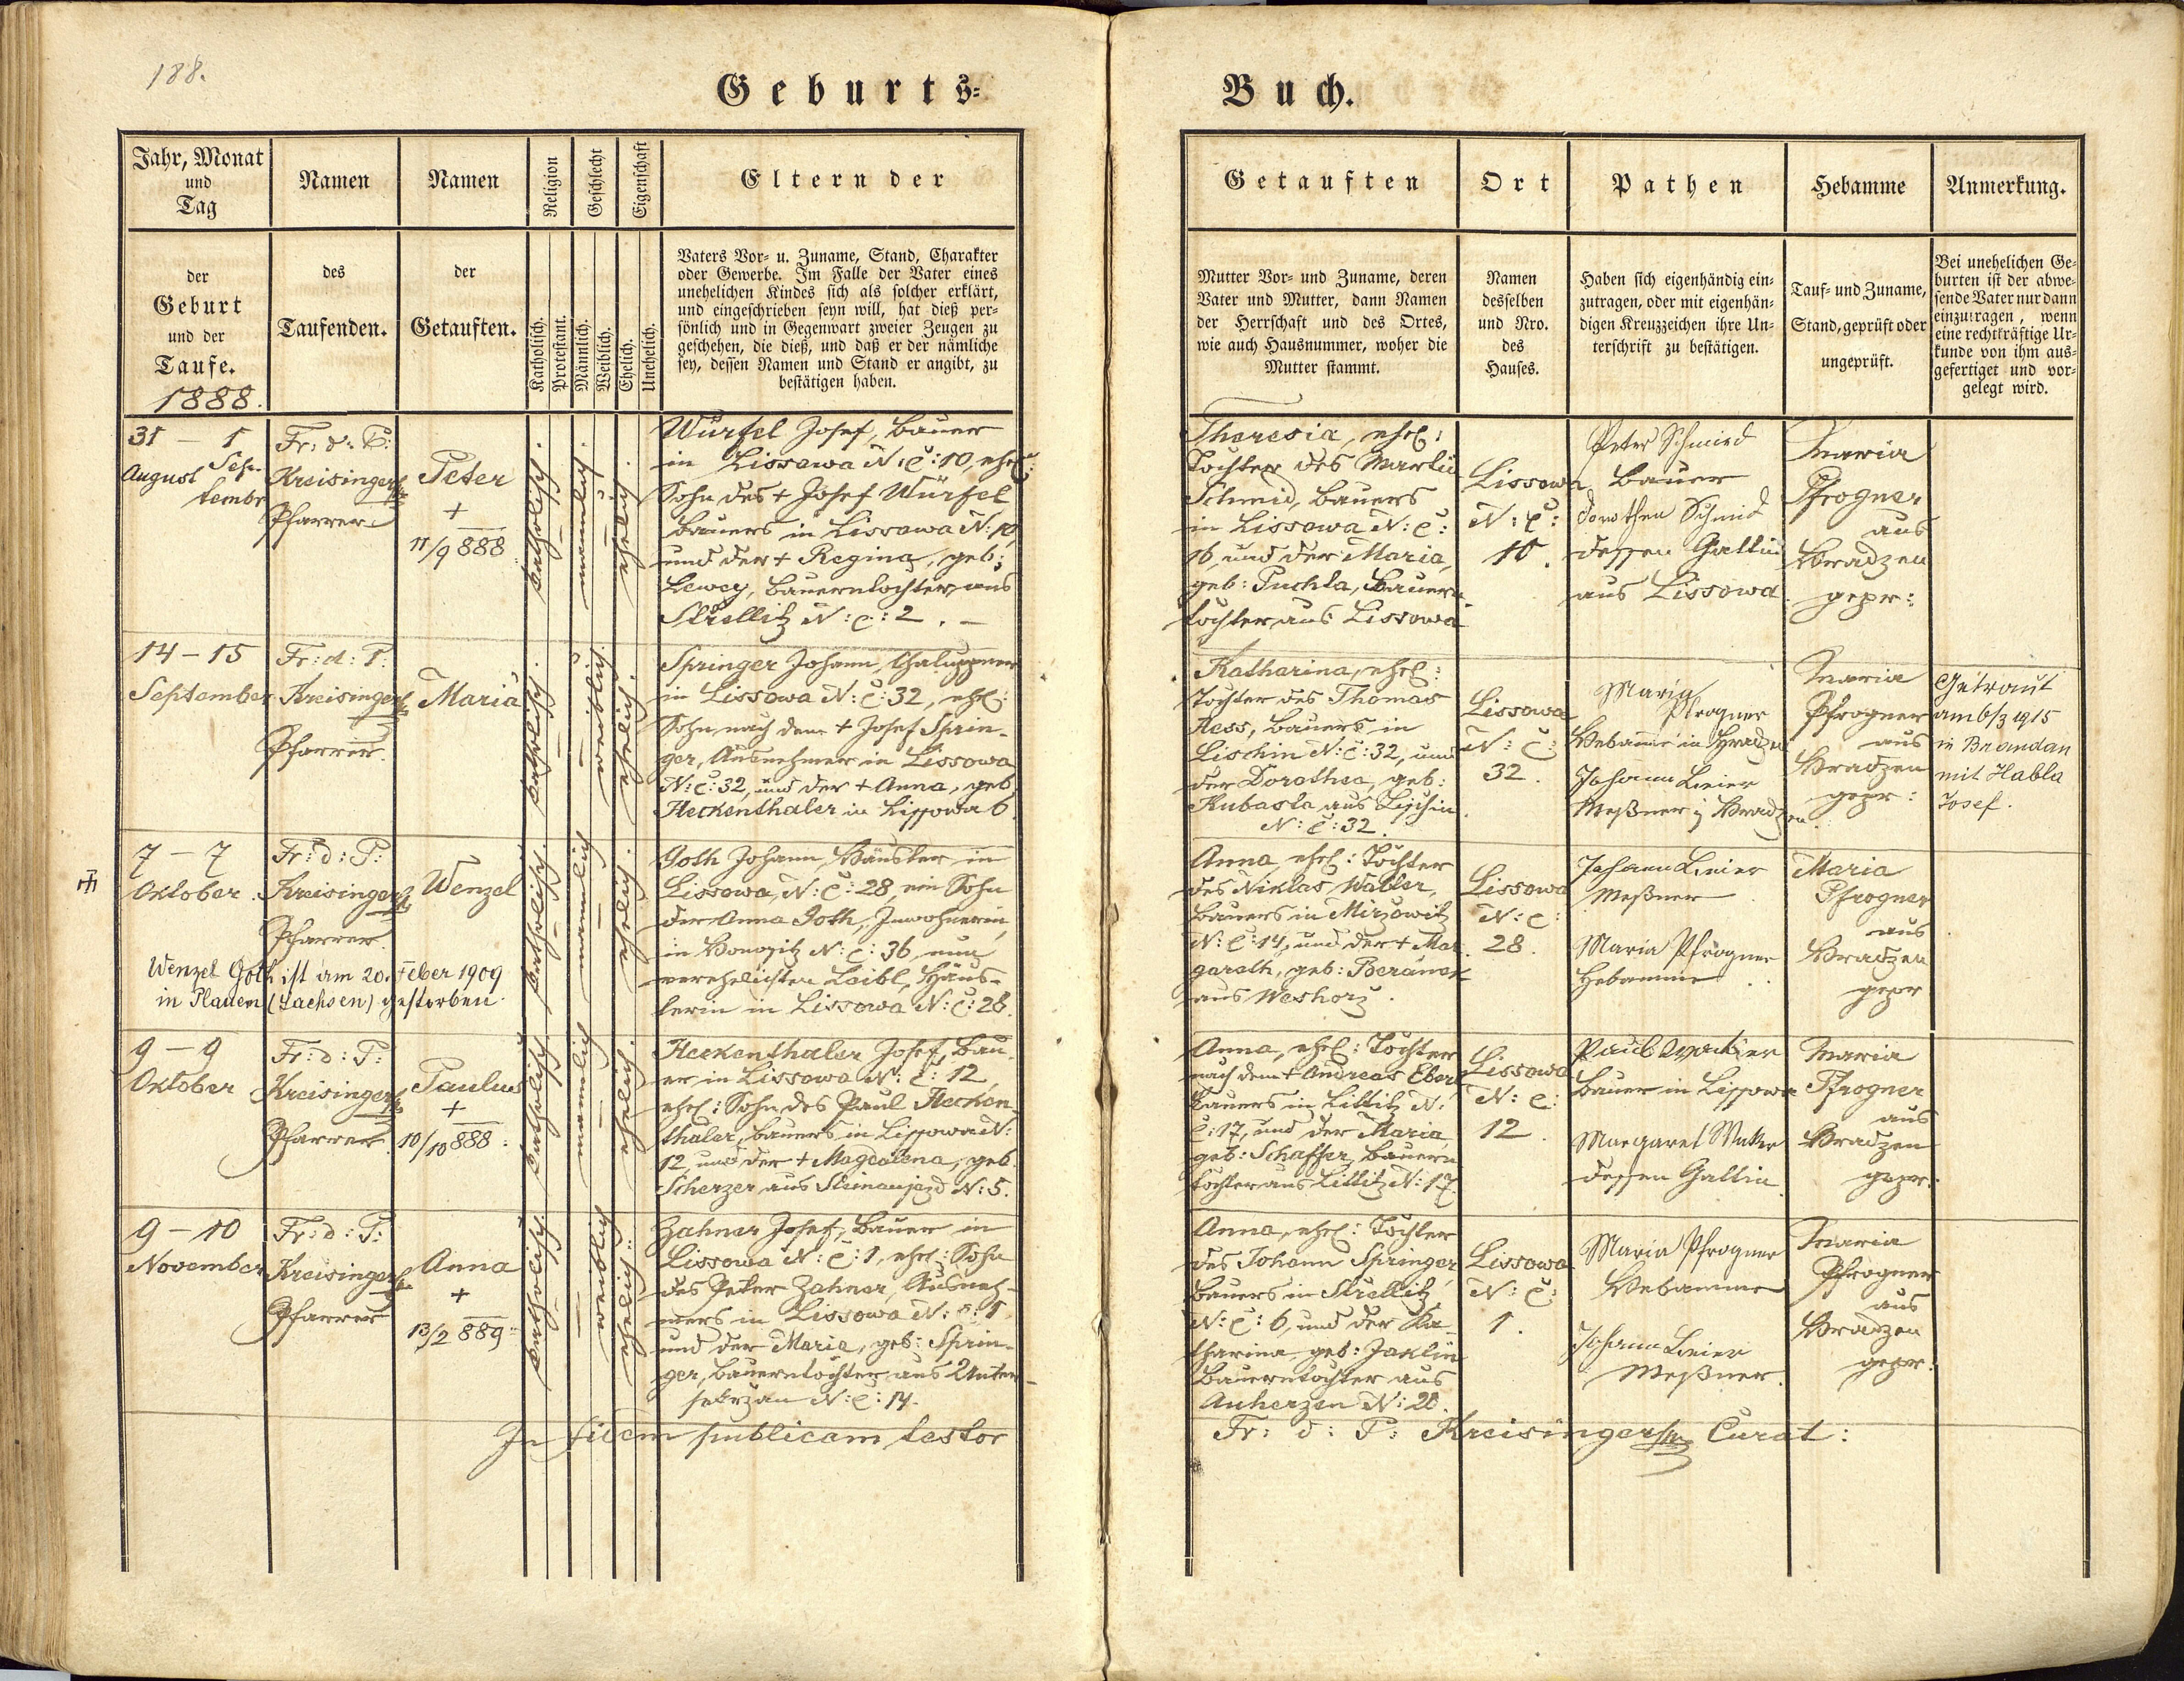 188.
Geburts-
Buch.
Jahr, Monat
und
Tag
der
Geburt
und der
Taufe.
1888.
Namen
des
Taufenden.
Namen
der
Getauften.
Religion
Katholisch.
Protestant.
Geschlecht
Männlich.
Weiblich.
Eigenschaft
Ehelich.
Unehelich.
Eltern der
Vaters Vor- u. Zuname, Stand, Charakter
oder Gewerbe. Im Falle der Vater eines
unehelichen Kindes sich als solcher erklärt,
und eingeschrieben seyn will, hat dieß per-
sönlich und in Gegenwart zweier Zeugen zu
geschehen, die dieß, und daß er der nämliche
sey, dessen Namen und Stand er angibt, zu
bestätigen haben.
Getauften
Mutter Vor- und Zuname, deren
Vater und Mutter, dann Namen
der Herrschaft und des Ortes,
wie auch Hausnummer, woher die
Mutter stammt.
Ort
Namen
desselben
und Nro.
des
Hauses.
Pathen
Haben sich eigenhändig ein-
zutragen, oder mit eigenhän-
digen Kreuzzeichen ihre Un-
terschrift zu bestätigen.
Hebamme
Tauf- und Zuname,
Stand, geprüft oder
ungeprüft.
Anmerkung.
Bei unehelichen Ge-
burten ist der abwe-
sende Vater nur dann
einzutragen, wenn
eine rechtkräftige Ur-
kunde von ihm aus-
gefertiget und vor-
gelegt wird.
31 – 1
August Sep-
tembr
Fr: d: P:
Kreisinger
Pfarrer
Peter
+
11/9 888
katholisch.
männlich
ehelich.
Würfel Josef, Bauer
in Lissowa N: C: 10, ehel:
Sohn des + Josef Würfel
Bauers in Lissowa N: 10,
und der + Regina, geb:
Lewey, Bauerntochter aus
Strellitz N: C: 2. –
Theresia, ehel:
Tochter des Martin
Schmid, Bauers
in Lissowa N: C:
16, und der Maria,
geb: Puchla, Bauern-
tochter aus Lissowa
Lissowa
N: C:
10.
Peter Schmied
Bauer
Dorothea Schmid
dessen Gattin
aus Lissowa
Maria
Pfrogner
aus
Hradzen
gepr:
14 – 15
September
Fr: d: P:
Kreisinger
Pfarrer.
Maria
katholisch.
weiblich
ehelich.
Springer Johann, Chaluppner
in Lissowa N: C: 32, ehel:
Sohn nach dem + Josef Sprin-
ger, Ausnehmer in Lissowa
N: C: 32, und der + Anna, geb
Heckenthaler in Lissowa 6.
Katharina, ehel:
Tochter des Thomas
Hess, Bauers in
Lischin N: C: 32, und
der Dorothea, geb:
Kubasta aus Lischin
N: C: 32.
Lissowa
N: C:
32.
Maria
Pfrogner
Hebamme in Hradzen
Johann Leier
Meßner in Hradzen
Maria
Pfrogner
aus
Hradzen
gepr:
Getraut
am 6/3 1915
in Brandau
mit Habla
Josef.
7 – 7
Oktober
Fr: d: P:
Kreisinger
Pfarrer.
Wenzel
katholisch.
männlich
ehelich.
Goth Johann, Häusler in
Lissowa, N: C: 28, ein Sohn
der Anna Goth, Inwohnerin
in Honositz N: C: 36, nun
verehelichten Loibl, Häus-
lerin in Lissowa N: C: 28.
Anna, ehel: Tochter
des Niklas Watler,
Bauers in Mirzowitz
N: C: 14, und der + Mar-
gareth, geb: Beránek
aus Weshorz.
Lissowa
N: C:
28.
Johann Leier
Meßner
Maria Pfrogner
Hebamme
Maria
Pfrogner
aus
Hradzen
gepr
Wenzel Goth ist am 20. Feber 1909
in Plauen (Sachsen) gestorben.
9 – 9
Oktober
Fr: d: P:
Kreisinger
Pfarrer
Paulus
+
10/10 888.
katholisch
männlich
ehelich.
Heckenthaler Josef, Bau-
er in Lissowa N: C: 12,
ehel: Sohn des Paul Hecken-
thaler, Bauers in Lissowa N:
12, und der + Magdalena, geb.
Scherzer aus Steinaujezd N: 5.
Anna, ehel: Tochter
nach dem + Andreas Eberl
Bauers in Littitz N:
C: 17, und der Maria
geb: Schaffer, Bauern-
tochter aus Littitz N: 17.
Lissowa
N: C:
12.
Paul
Bauer in Lissowa
Margaret
dessen Gattin
Maria
Pfrogner
aus
Hradzen
gepr:
9 – 10
November
Fr: d: P:
Kreisinger
Pfarrer
Anna
+
13/2 889
katholisch.
weiblich
ehelich.
Zahner Josef, Bauer in
Lissowa N: C: 1, ehel: Sohn
des Peter Zahner, Ausneh-
mers in Lissowa N: C: 1
und der Maria, geb: Sprin-
ger, Bauerntochter aus Unter-
sekrzan N: C: 14.
Anna, ehel: Tochter
des Johann Springer,
Bauers in Strellitz
N: C: 6, und der Ka-
tharina, geb: Jaklin
Bauerntochter aus
Auherzen N: 28.
Lissowa
N: C:
1.
Maria Pfrogner
Hebamme
Johann Leier
Meßner.
Maria
Pfrogner
aus
Hradzen
gepr:
In fidem publicam testor
Fr: d: P: Kreisinger Curat: